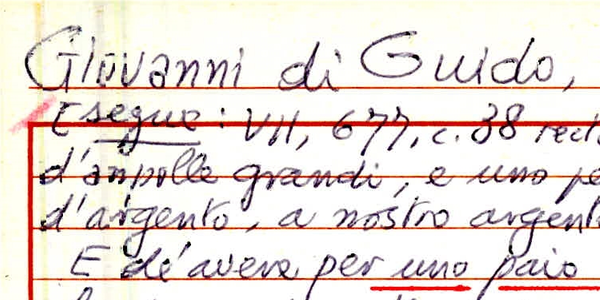 Giovanni di Guido,
E segue: VII, 677, c. 38
d'anpolle grandi, e uno
d'argento, a nostro argent
E de' avere per uno paio